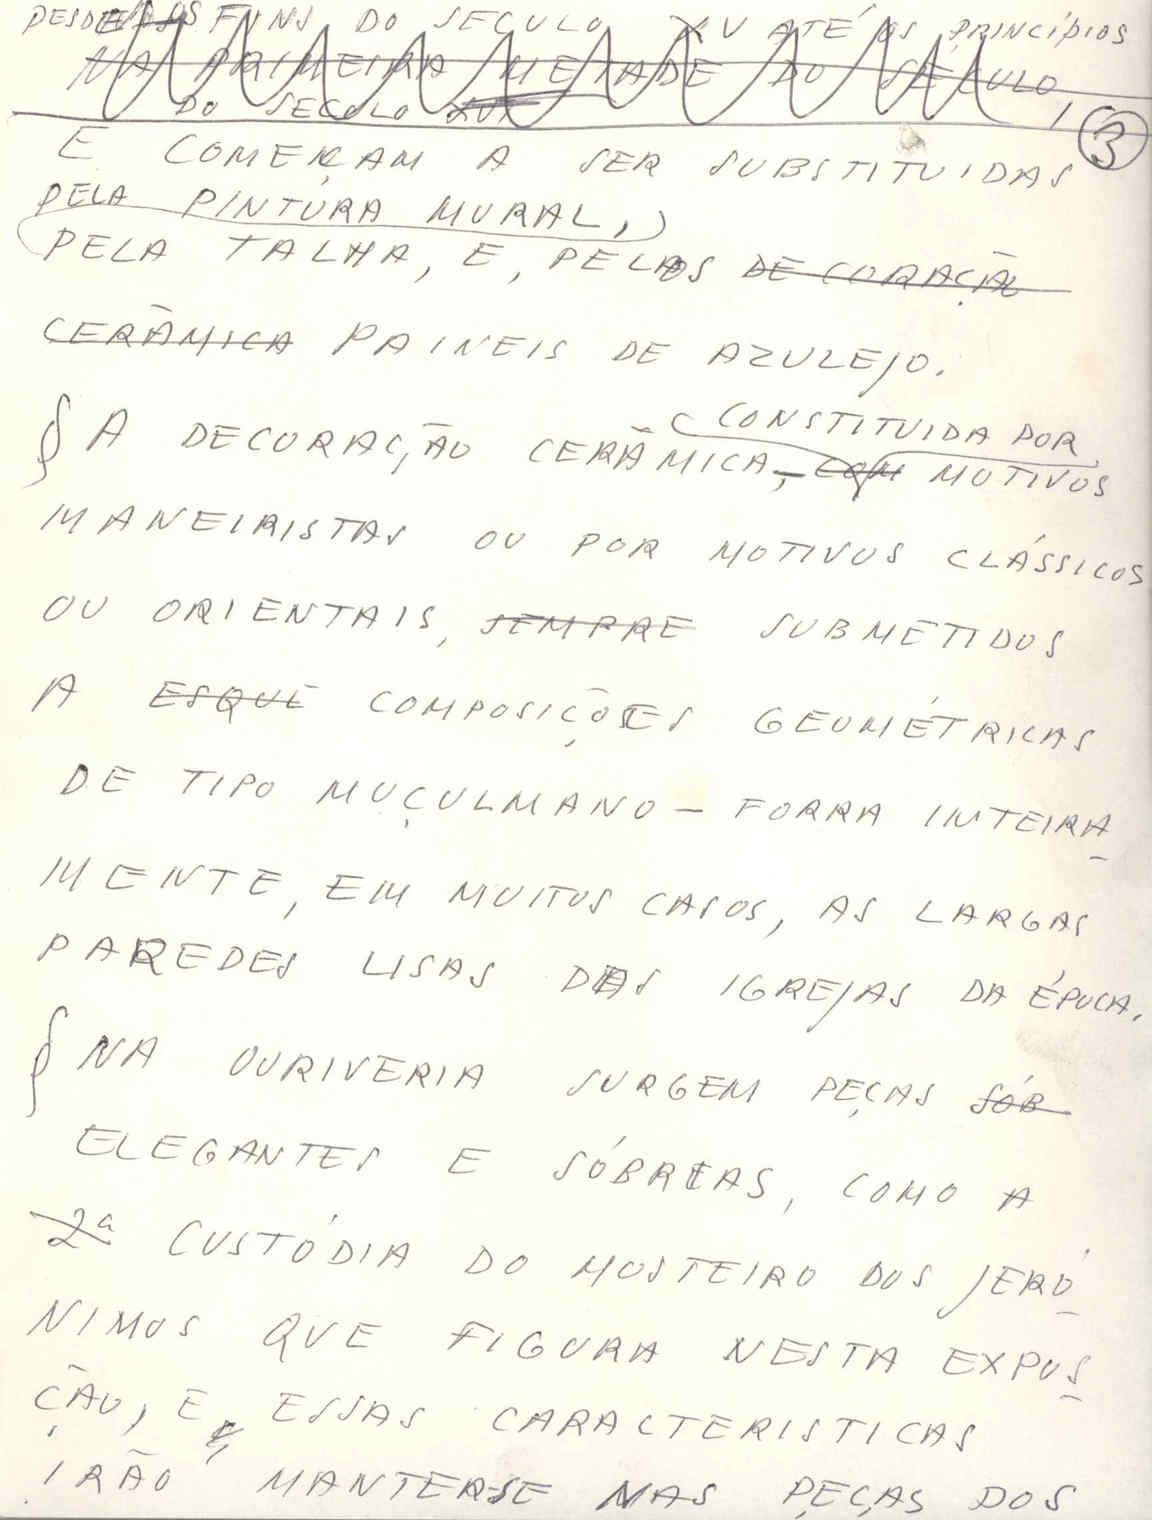 DESDE OS FINS DO SECULO XV ATÉ OS PRINCÍPIOS
NA PRIMEIRA METADE DO SECULO
DO SECULO XVI
3
E COMEÇAM A SER SUBSTITUIDAS
PELA PINTURA MURAL,
PELA TALHA, E, PELOS DECORAÇÃO
CERÂMICA PAINEIS DE AZULEJO.
CONSTITUIDA POR
§ A DECORAÇÃO CERÂMICA, – COM MOTIVOS
MANEIRISTAS OU POR MOTIVOS CLÁSSICOS
OU ORIENTAIS, SEMPRE SUBMETIDOS
A ESQUE COMPOSIÇÕES GEOMÉTRICAS
DE TIPO MUÇULMANO – FORRA INTEIRA-
MENTE, EM MUITOS CASOS, AS LARGAS
PAREDES LISAS DAS IGREJAS DA ÉPOCA.
§ NA OURIVERIA SURGEM PEÇAS SÓB
ELEGANTES E SÓBRIAS, COMO A
2ª CUSTÓDIA DO MOSTEIRO DOS JERÓ-
NIMOS QUE FIGURA NESTA EXPOS-
ÇÃO, E, ESSAS CARACTERISTICAS
IRÃO MANTER-SE NAS PEÇAS DOS